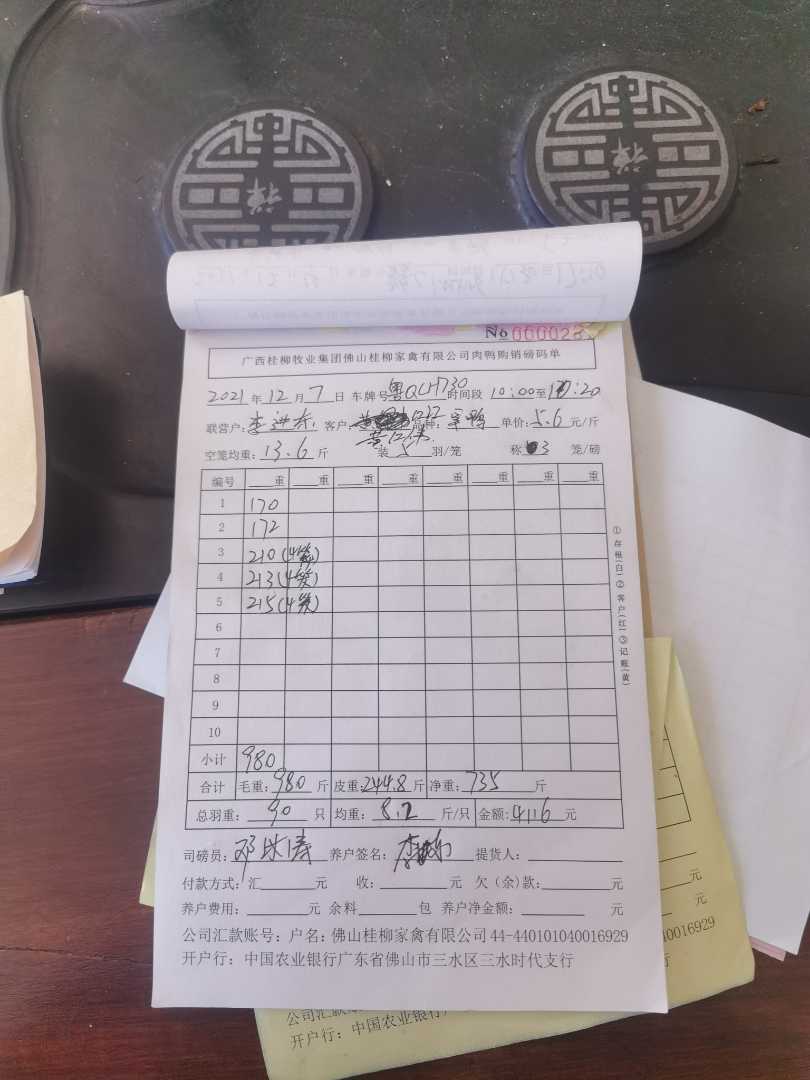 禅
禅
No 0000028
广西桂柳牧业集团佛山桂柳家禽有限公司肉鸭购销磅码单
2021 年 12 月 7 日 车牌号 粤QLH730 时间段 10:00至10:20
联营户: 李进东 客户: 品种: 单价: 5.6 元/斤
空笼均重: 13.6 斤 装 5 羽/笼 称 3 笼/磅
编号 重 重 重 重 重 重 重 重
1 170
2 172
3 210(4笼)
4 213(4笼)
5 215(4笼)
6
7
8
9
10
小计 980
合计 毛重: 980 斤 皮重: 244.8 斤 净重: 735 斤
总羽重: 90 只 均重: 8.2 斤/只 金额: 4116 元
①存根(白)②客户(红)③记账(黄)
司磅员: 养户签名: 提货人:
付款方式: 汇 元 收: 元 欠(余)款: 元
养户费用: 元 余料 包 养户净金额: 元
公司汇款账号: 户名: 佛山桂柳家禽有限公司 44-440101040016929
开户行: 中国农业银行广东省佛山市三水区三水时代支行
元
元
10016929
行
公司汇款
开户行: 中国农业银行